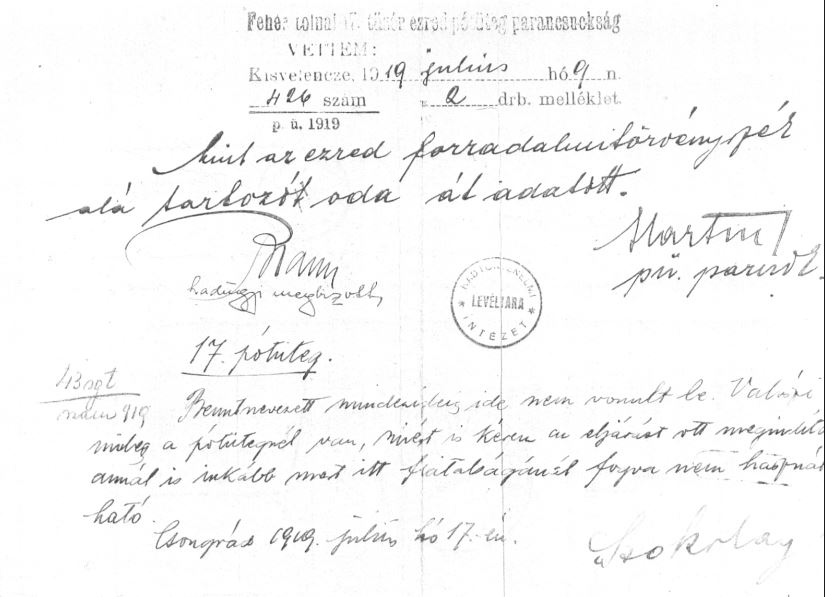 Fehér tolnai 17. tüzér ezred pótüteg parancsnokság
VETTEM:
Kisvelencze, 1919 július hó 9 n.
426 szám 2 drb. melléklet.
p. ü. 1919
Mint az ezred forradalmi törvényszék
alá tartozót oda át adatott.
Martin
pü. parcsk.
hadügyi megbizott
HADTÖRTÉNELMI
LEVÉLTÁRA
INTÉZET
17. pótüteg.
43 szt
szám 919
Benntnevezett mindezideig ide nem vonult be. Valószi
nüleg a pótütegnél van, miért is kérem az eljárást ott megindit
annál is inkább mert itt fiatalságánál fogva nem használ
ható.
Csongrád 1919. július hó 17.-én.
Csokolay